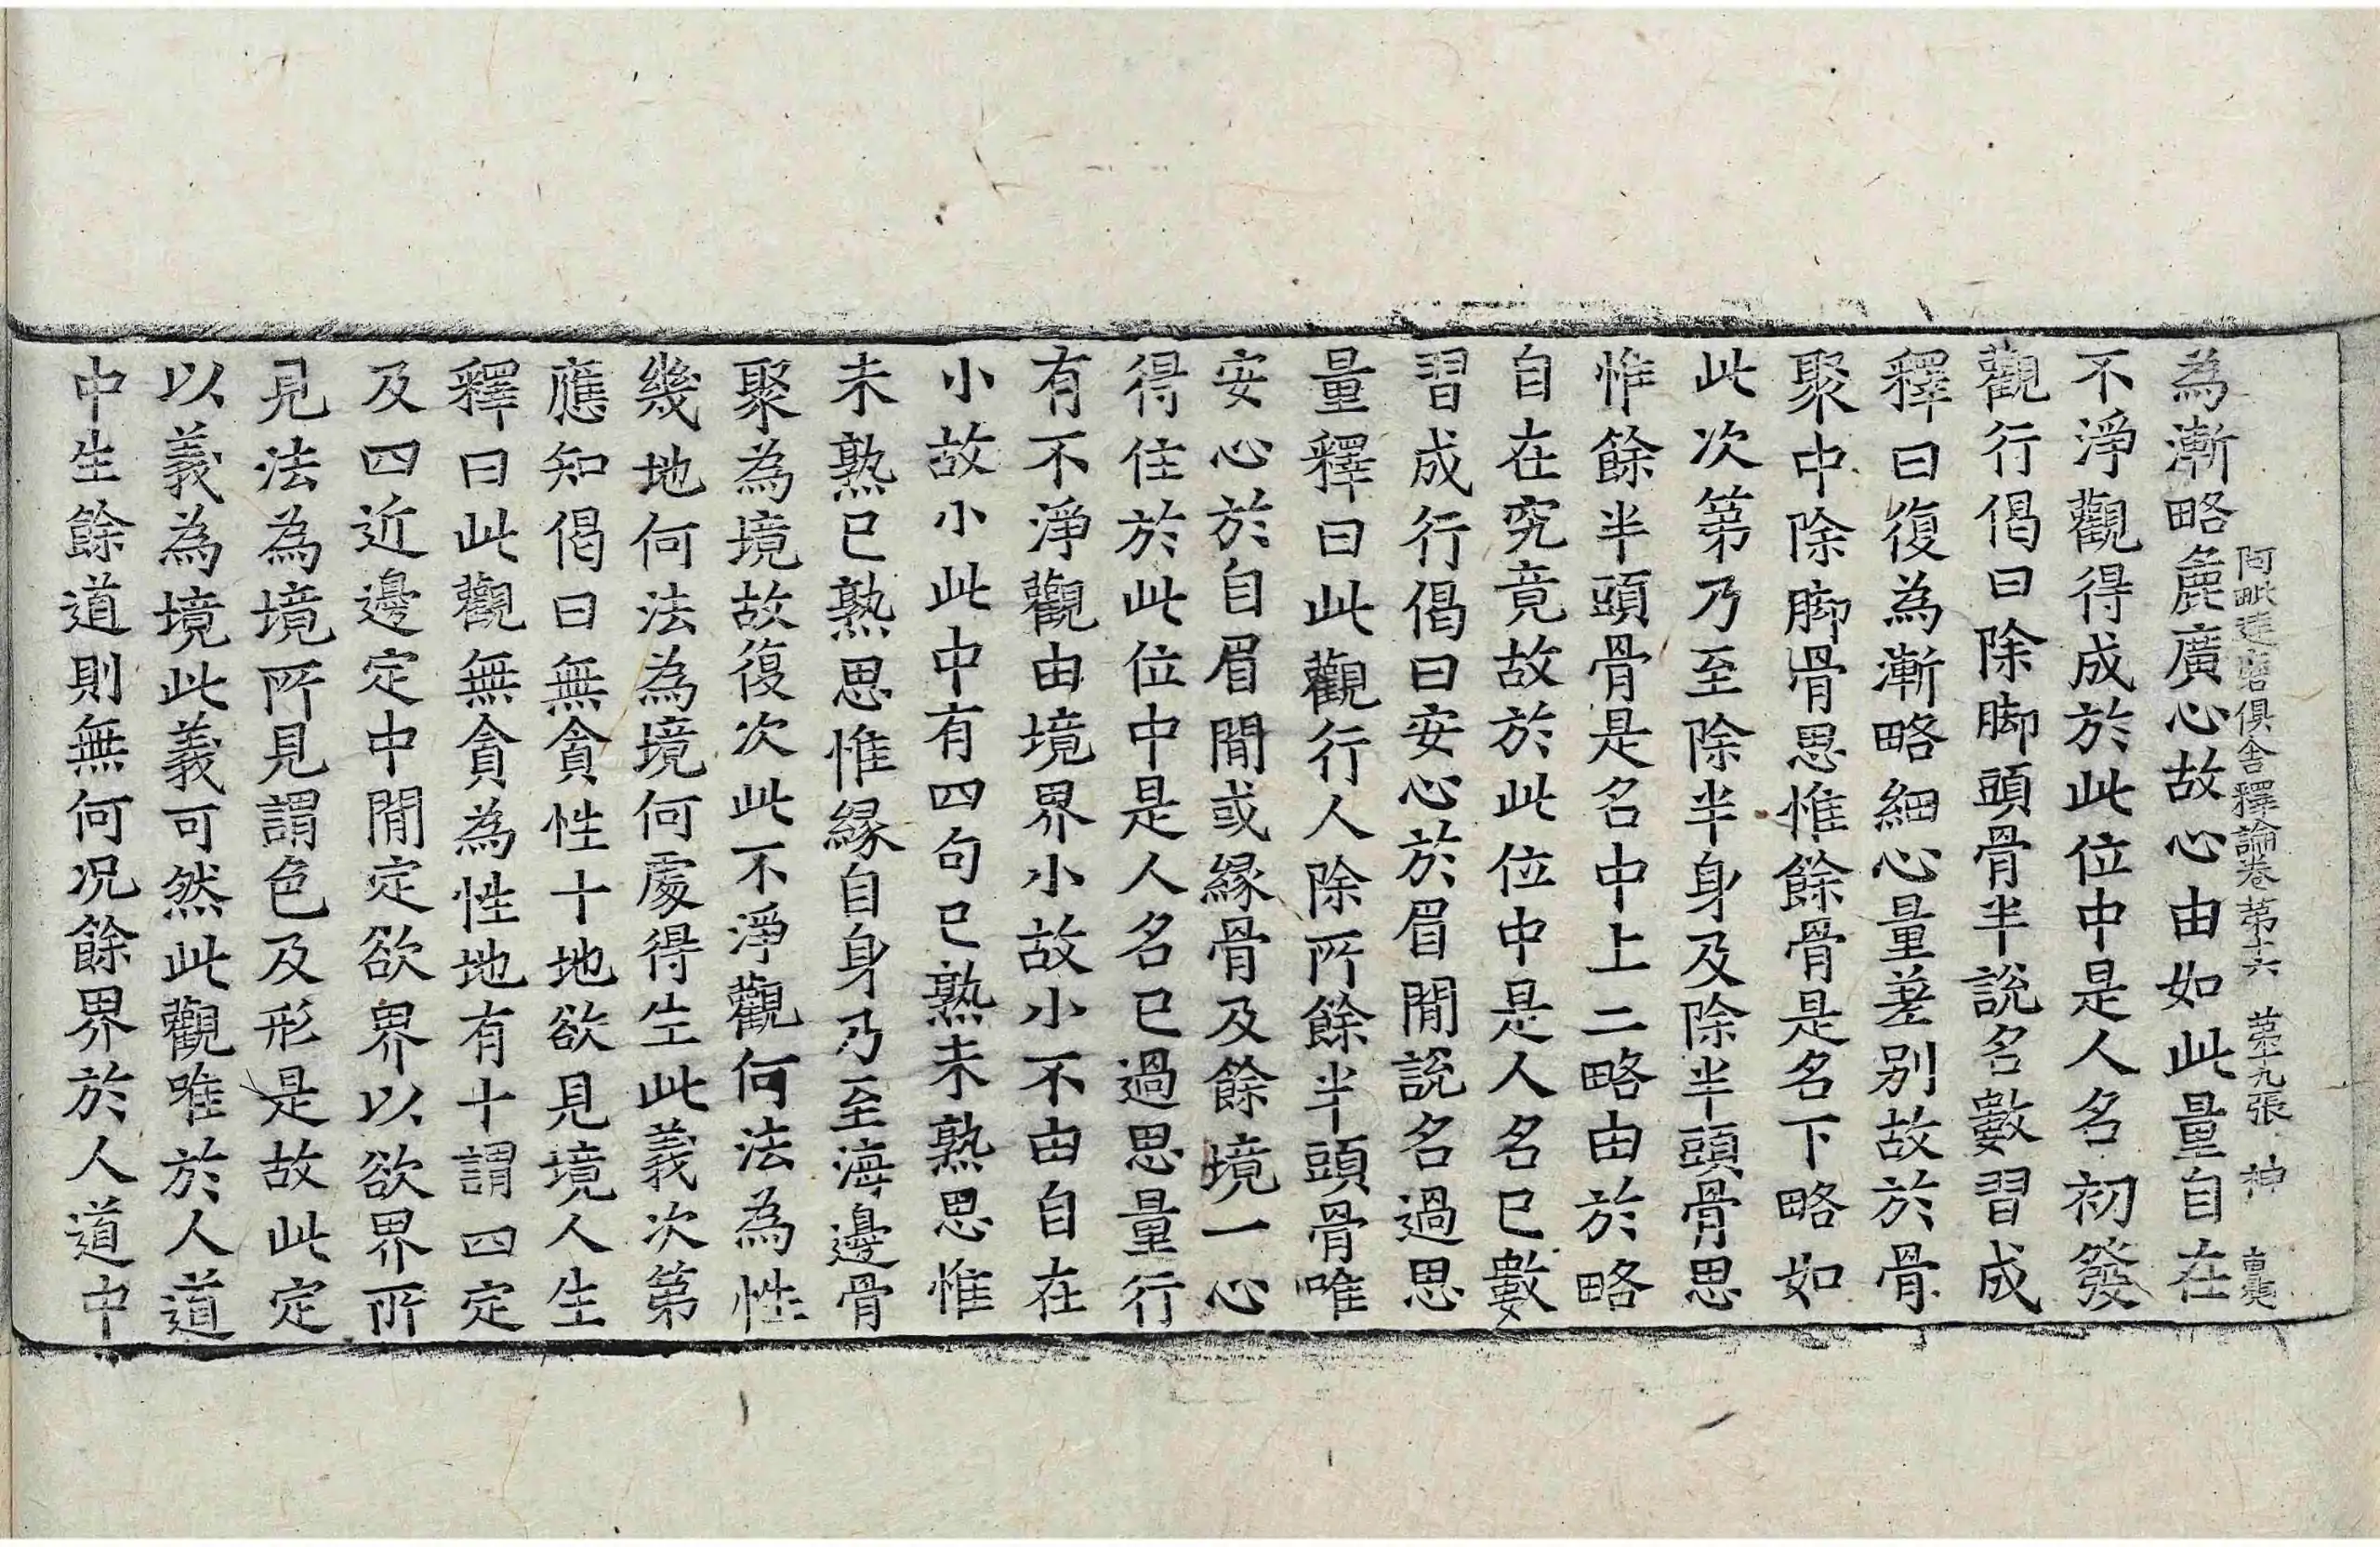 阿毗達磨俱舍釋論卷第十六 第十九張 神
為漸略麁廣心故心由如此量自在
不淨觀得成於此位中是人名初發
觀行偈曰除脚頭骨半說名數習成
釋曰復為漸略細心量差别故於骨
聚中除脚骨思惟餘骨是名下略如
此次第乃至除半身及除半頭骨思
惟餘半頭骨是名中上二略由於略
自在究竟故於此位中是人名已數
習成行偈曰安心於眉閒說名過思
量釋曰此觀行人除所餘半頭骨唯
安心於自眉閒或緣骨及餘境一心
得住於此位中是人名已過思量行
有不淨觀由境界小故小不由自在
小故小此中有四句已熟未熟思惟
未熟已熟思惟緣自身乃至海邊骨
聚為境故復次此不淨觀何法為性
幾地何法為境何處得生此義次第
應知偈曰無貪性十地欲見境人生
釋曰此觀無貪為性地有十謂四定
及四近邊定中閒定欲界以欲界所
見法為境所見謂色及形是故此定
以義為境此義可然此觀唯於人道
中生餘道則無何况餘界於人道中